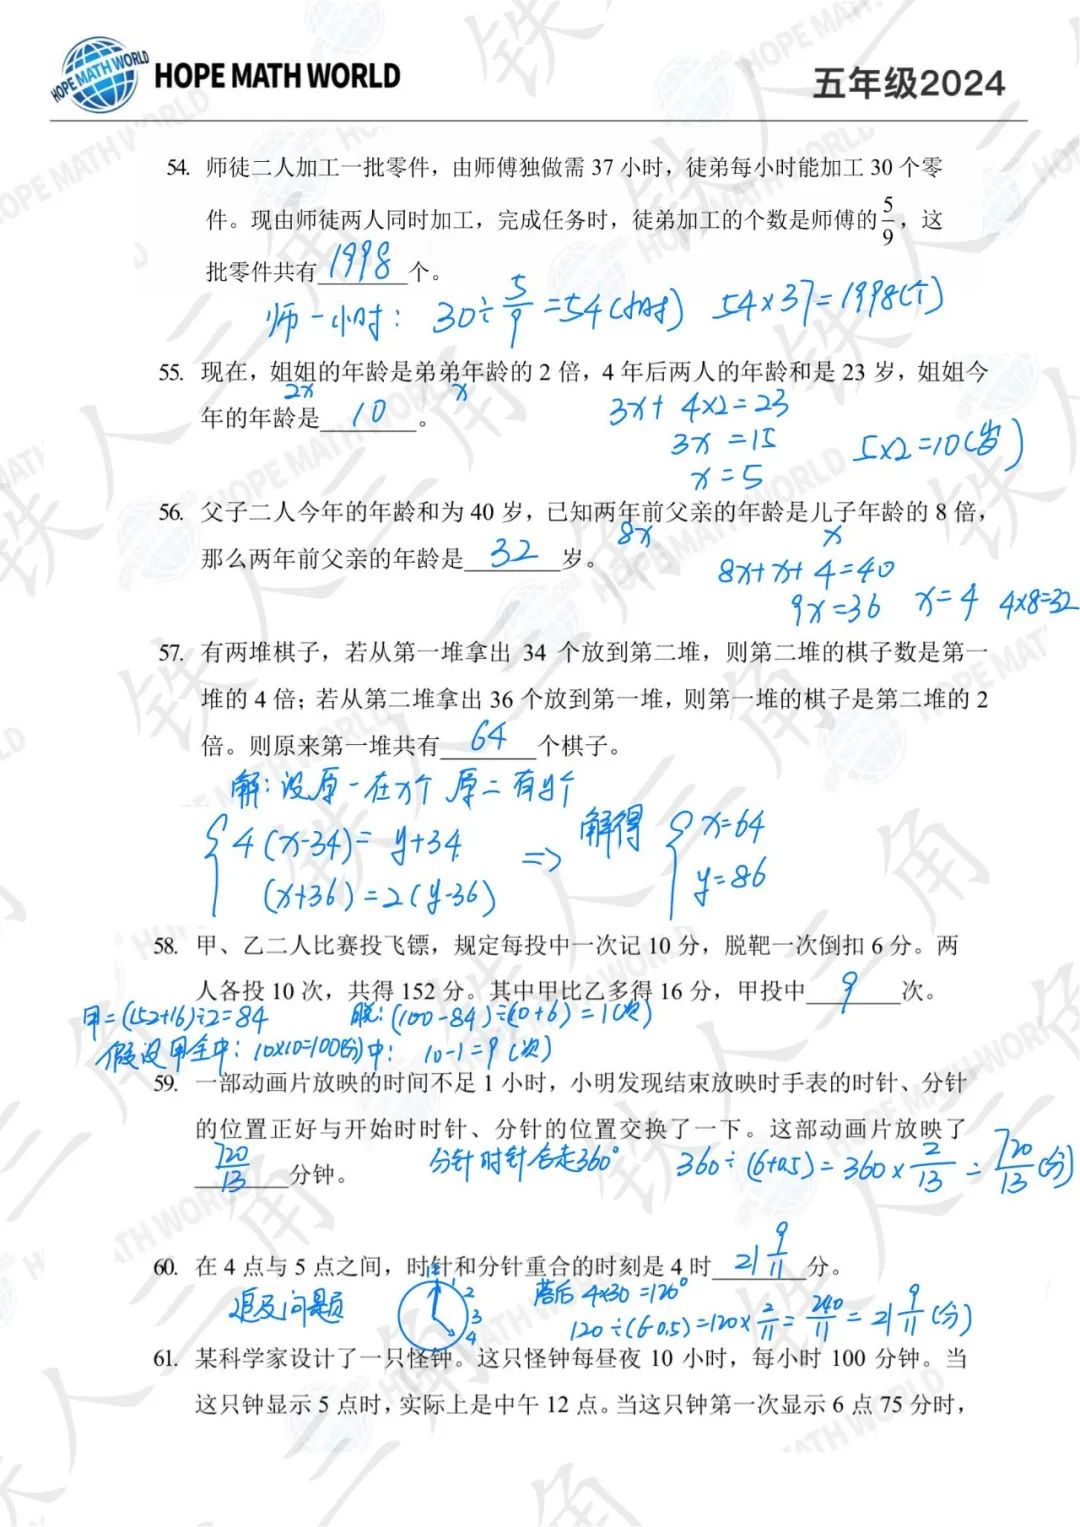 HOPE MATH WORLD
HOPE MATH WORLD
五年级2024
54. 师徒二人加工一批零件，由师傅独做需 37 小时，徒弟每小时能加工 30 个零
件。现由师徒两人同时加工，完成任务时，徒弟加工的个数是师傅的 5/9，这
批零件共有 1998 个。
师一小时： 30÷5/9=54(小时) 54×37=1998(个)
55. 现在，姐姐的年龄是弟弟年龄的 2 倍，4 年后两人的年龄和是 23 岁，姐姐今
2x x
年的年龄是 10 。
3x+4×2=23
3x=15
x=5
5×2=10(岁)
56. 父子二人今年的年龄和为 40 岁，已知两年前父亲的年龄是儿子年龄的 8 倍，
8x x
那么两年前父亲的年龄是 32 岁。
8x+x+4=40
9x=36 x=4 4×8=32
57. 有两堆棋子，若从第一堆拿出 34 个放到第二堆，则第二堆的棋子数是第一
堆的 4 倍；若从第二堆拿出 36 个放到第一堆，则第一堆的棋子是第二堆的 2
倍。则原来第一堆共有 64 个棋子。
解：设原一在x个 原二有y个
4(x-34)=y+34
(x+36)=2(y-36)
=> 解得 x=64
y=86
58. 甲、乙二人比赛投飞镖，规定每投中一次记 10 分，脱靶一次倒扣 6 分。两
人各投 10 次，共得 152 分。其中甲比乙多得 16 分，甲投中 9 次。
甲=(152+16)÷2=84 脱：(100-84)÷(10+6)=1(次)
假设甲全中：10×10=100(分) 中： 10-1=9(次)
59. 一部动画片放映的时间不足 1 小时，小明发现结束放映时手表的时针、分针
的位置正好与开始时时针、分针的位置交换了一下。这部动画片放映了
720/13 分钟。
分针时针合走360° 360÷(6+0.5)=360×2/13=720/13(分)
60. 在 4 点与 5 点之间，时针和分针重合的时刻是 4 时 21 9/11 分。
追及问题
12 1 2 3 4
落后 4×30=120°
120÷(6-0.5)=120×2/11=240/11=21 9/11(分)
61. 某科学家设计了一只怪钟。这只怪钟每昼夜 10 小时，每小时 100 分钟。当
这只钟显示 5 点时，实际上是中午 12 点。当这只钟第一次显示 6 点 75 分时，
铁人三角